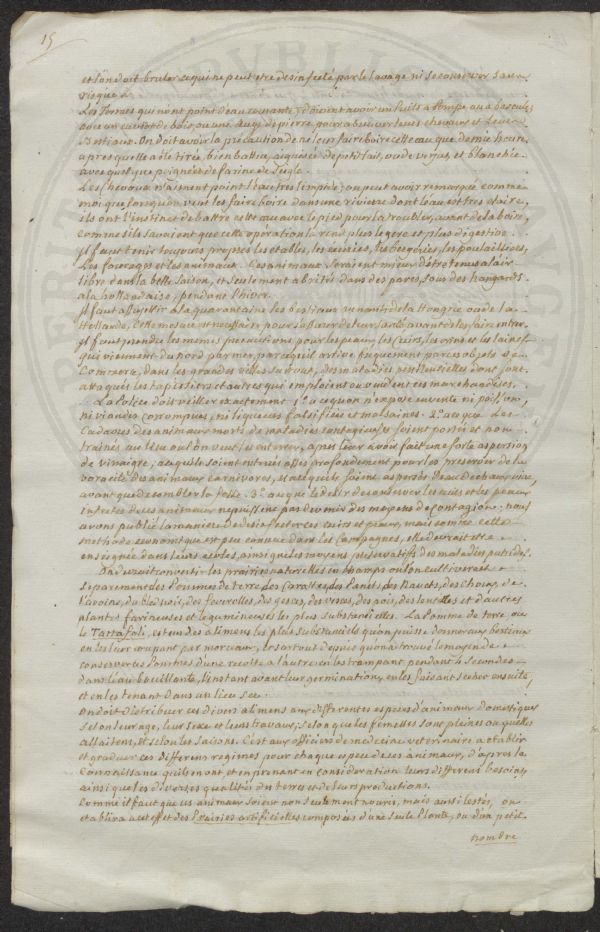 15
et l'on doit bruler ce qui ne peut etre desinfecté par le lavage ni se conserver sans
risque.
Les fermes qui n'ont point d'eau courante y doivent avoir un Puits a Pompe ou a bascule
avec un cuvier de bois, ou une Auge de pierre, pour abreuver leurs chevaux et leurs
Bestiaux. On doit avoir la précaution de ne leur faire boire cette eau que demie heure
apres quelle a été tirée, bien battue, aiguisée de petit lait, ou de verjus et blanchie
avec quelque poignée de farine de seigle.
Les Chevaux n'aiment point l'eau tres limpide; on peut avoir remarqué comme
moi que lorsqu'on veut les faire boire dans une riviere dont l'eau est tres claire,
ils ont l'instinct de battre cette eau avec le pied pour la troubler, avant de la boire,
comme s'ils savoient que cette operation la rend plus legere et plus digestive.
Il faut tenir toujours propres les etables, les ecuries, les bergeries, les poulaillers,
Les fourages et les animaux. Ces animaux seraient mieux d'être tenus a l'air
libre dans la belle saison, et seulement abrités dans des parcs, sous des hangards
a la hollandaise, pendant l'hiver.
Il faut assujettir a la quarantaine les bestiaux venants de la Hongrie ou de la
Hollande, cette mesure est necessaire pour s'assurer de leur santé avant de les faire entrer.
Il faut prendre les mêmes precautions pour les peaux, les Cuirs, les crins et les laines
qui viennent du Nord par mer, parcequ'il arrive frequement par ces objets de
Commerce, dans les grandes villes surtout, des maladies pestilentielles dont sont
attaqués les tapissiers et autres qui emploient ou vendent ces marchandises.
La Police doit veiller exactement 1.° a ce qu'on n'expose en vente ni poisson,
ni viandes corrompues, ni liqueurs falsifiées et malsaines. 2.° a ce que Les
Cadavres des animaux morts de maladies contagieuses soient portés et non
trainés au lieu ou l'on veut les enterrer, apres leur avoir fait une forte aspersion
de vinaigre, a ce qu'ils soient enterrés assés profondement pour les preserver de la
voracité des animaux carnivores, et a ce qu'ils soient aspersés d'eau de chaux vive,
avant que de combler la fosse. 3.° a ce que le desir de conserver les cuirs et les peaux
infectes de ces animaux ne puisse pas devenir des moyens de contagion; nous
avons publié la maniere de desinfecter ces cuirs et peaux, mais comme cette
methode economique est peu connue dans les Campagnes, elle devrait etre
enseignée dans leurs ecoles, ainsi que les moyens préservatifs des maladies putrides.
On devroit convertir les prairies naturelles en champs ou l'on cultiverait
séparement des Pommes de terre, des Carottes, des Panets, des Navets, des Choux, de
l'avoine, du bled noir, des feverolles, des gesces, des vesces, des pois, des lentilles et d'autres
plantes farineuses et legumineuses les plus substantielles. La Pomme de terre ou
le Tartafoli, est un des alimens les plus substantiels qu'on puisse donner aux bestiaux
en les leur coupant par morceaux, et surtout depuis qu'on a trouvé le moyen de
conserver ces Pommes d'une recolte a l'autre en les trempant pendant 4 secondes
dans l'eau bouillante, l'instant avant leur germination, en les faisant secher ensuite,
et en les tenant dans un lieu sec.
On doit distribuer ces divers alimens aux differentes especes d'animaux domestiques
selon leur age, leur sexe et leurs travaux; selon que les femelles sont pleines ou qu'elles
allaitent, et selon les saisons. C'est aux officiers de medecine veterinaire a etablir
et graduer ces differens regimes pour chaque espece de ces animaux, d'apres la
Connaissance qu'ils en ont et en prenant en consideration leurs differens besoins,
ainsi que les diverses qualités des terres et de leurs productions.
Comme il faut que ces animaux soient non seulement nourris, mais aussi lestés, on
etablira a cet effet des Prairies artificielles composées d'une seule Plante, ou d'un petit
nombre